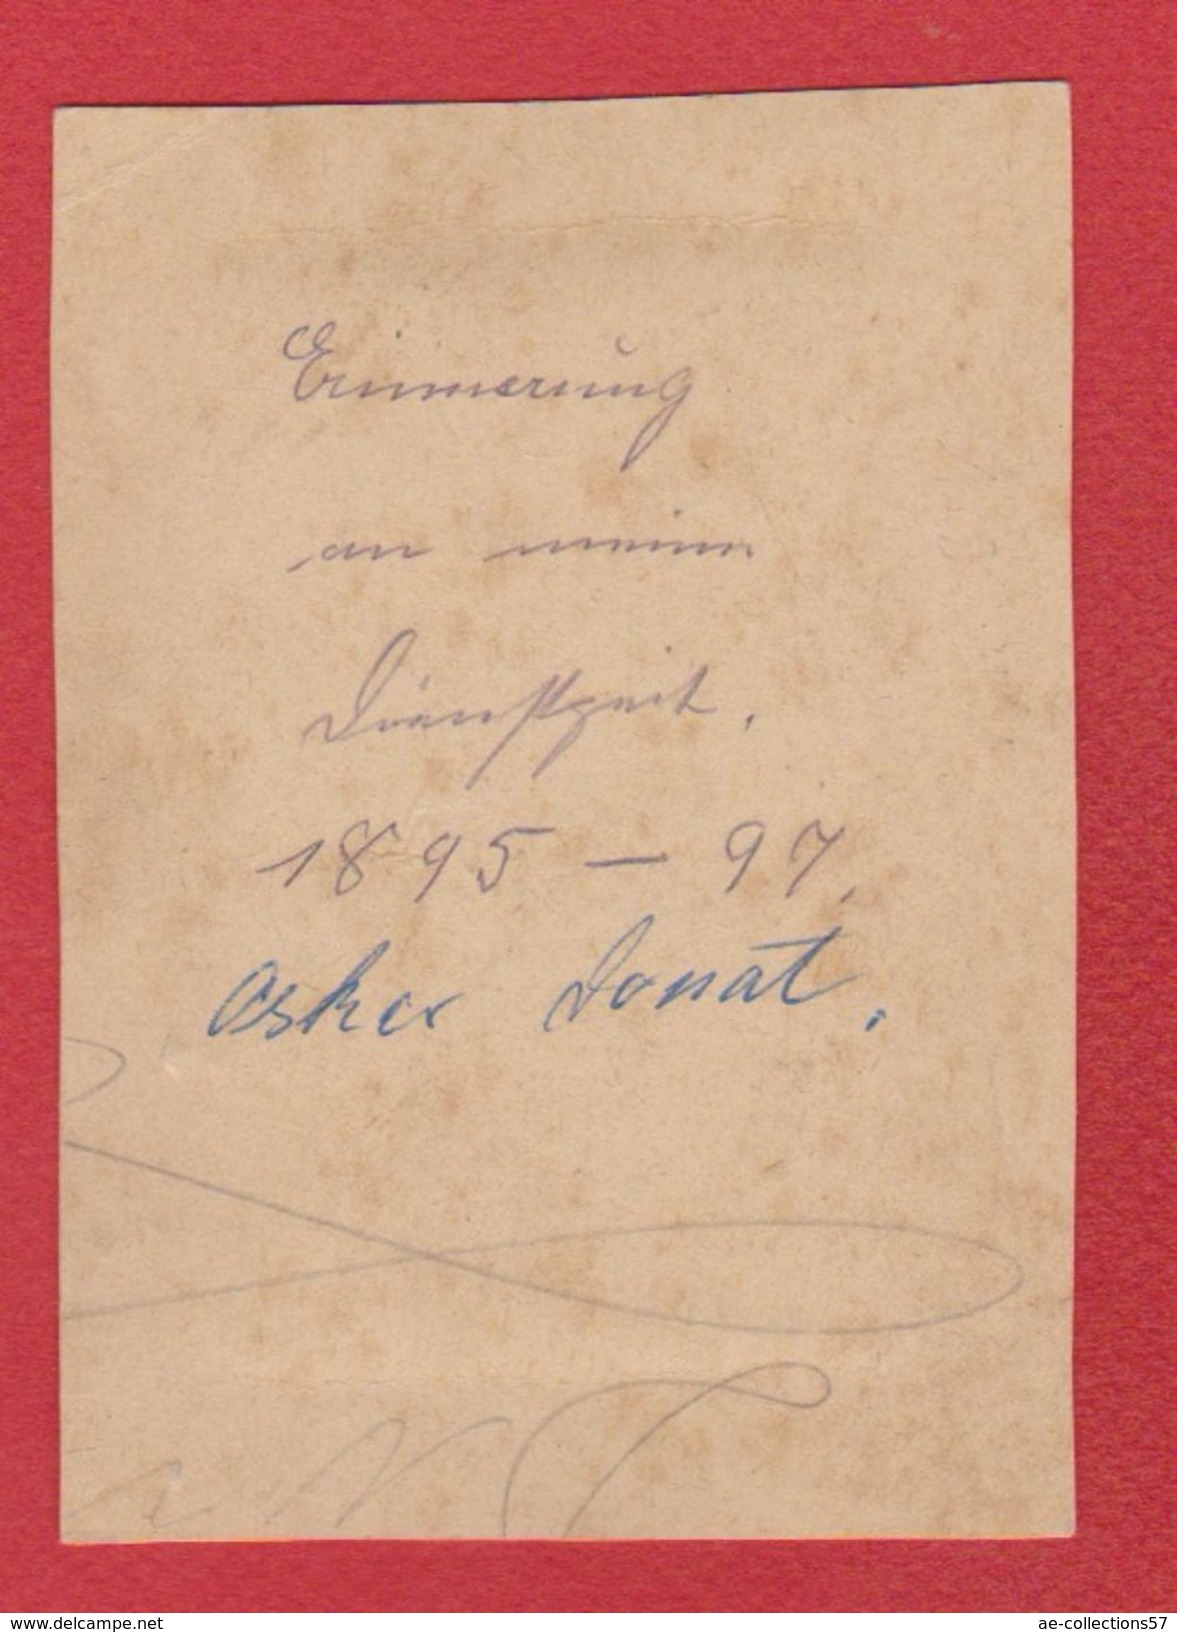 Erinnerung
an meine
Dienstzeit.
1895 — 97.
Oskar Donat.
www.delcampe.net
ae-collections57